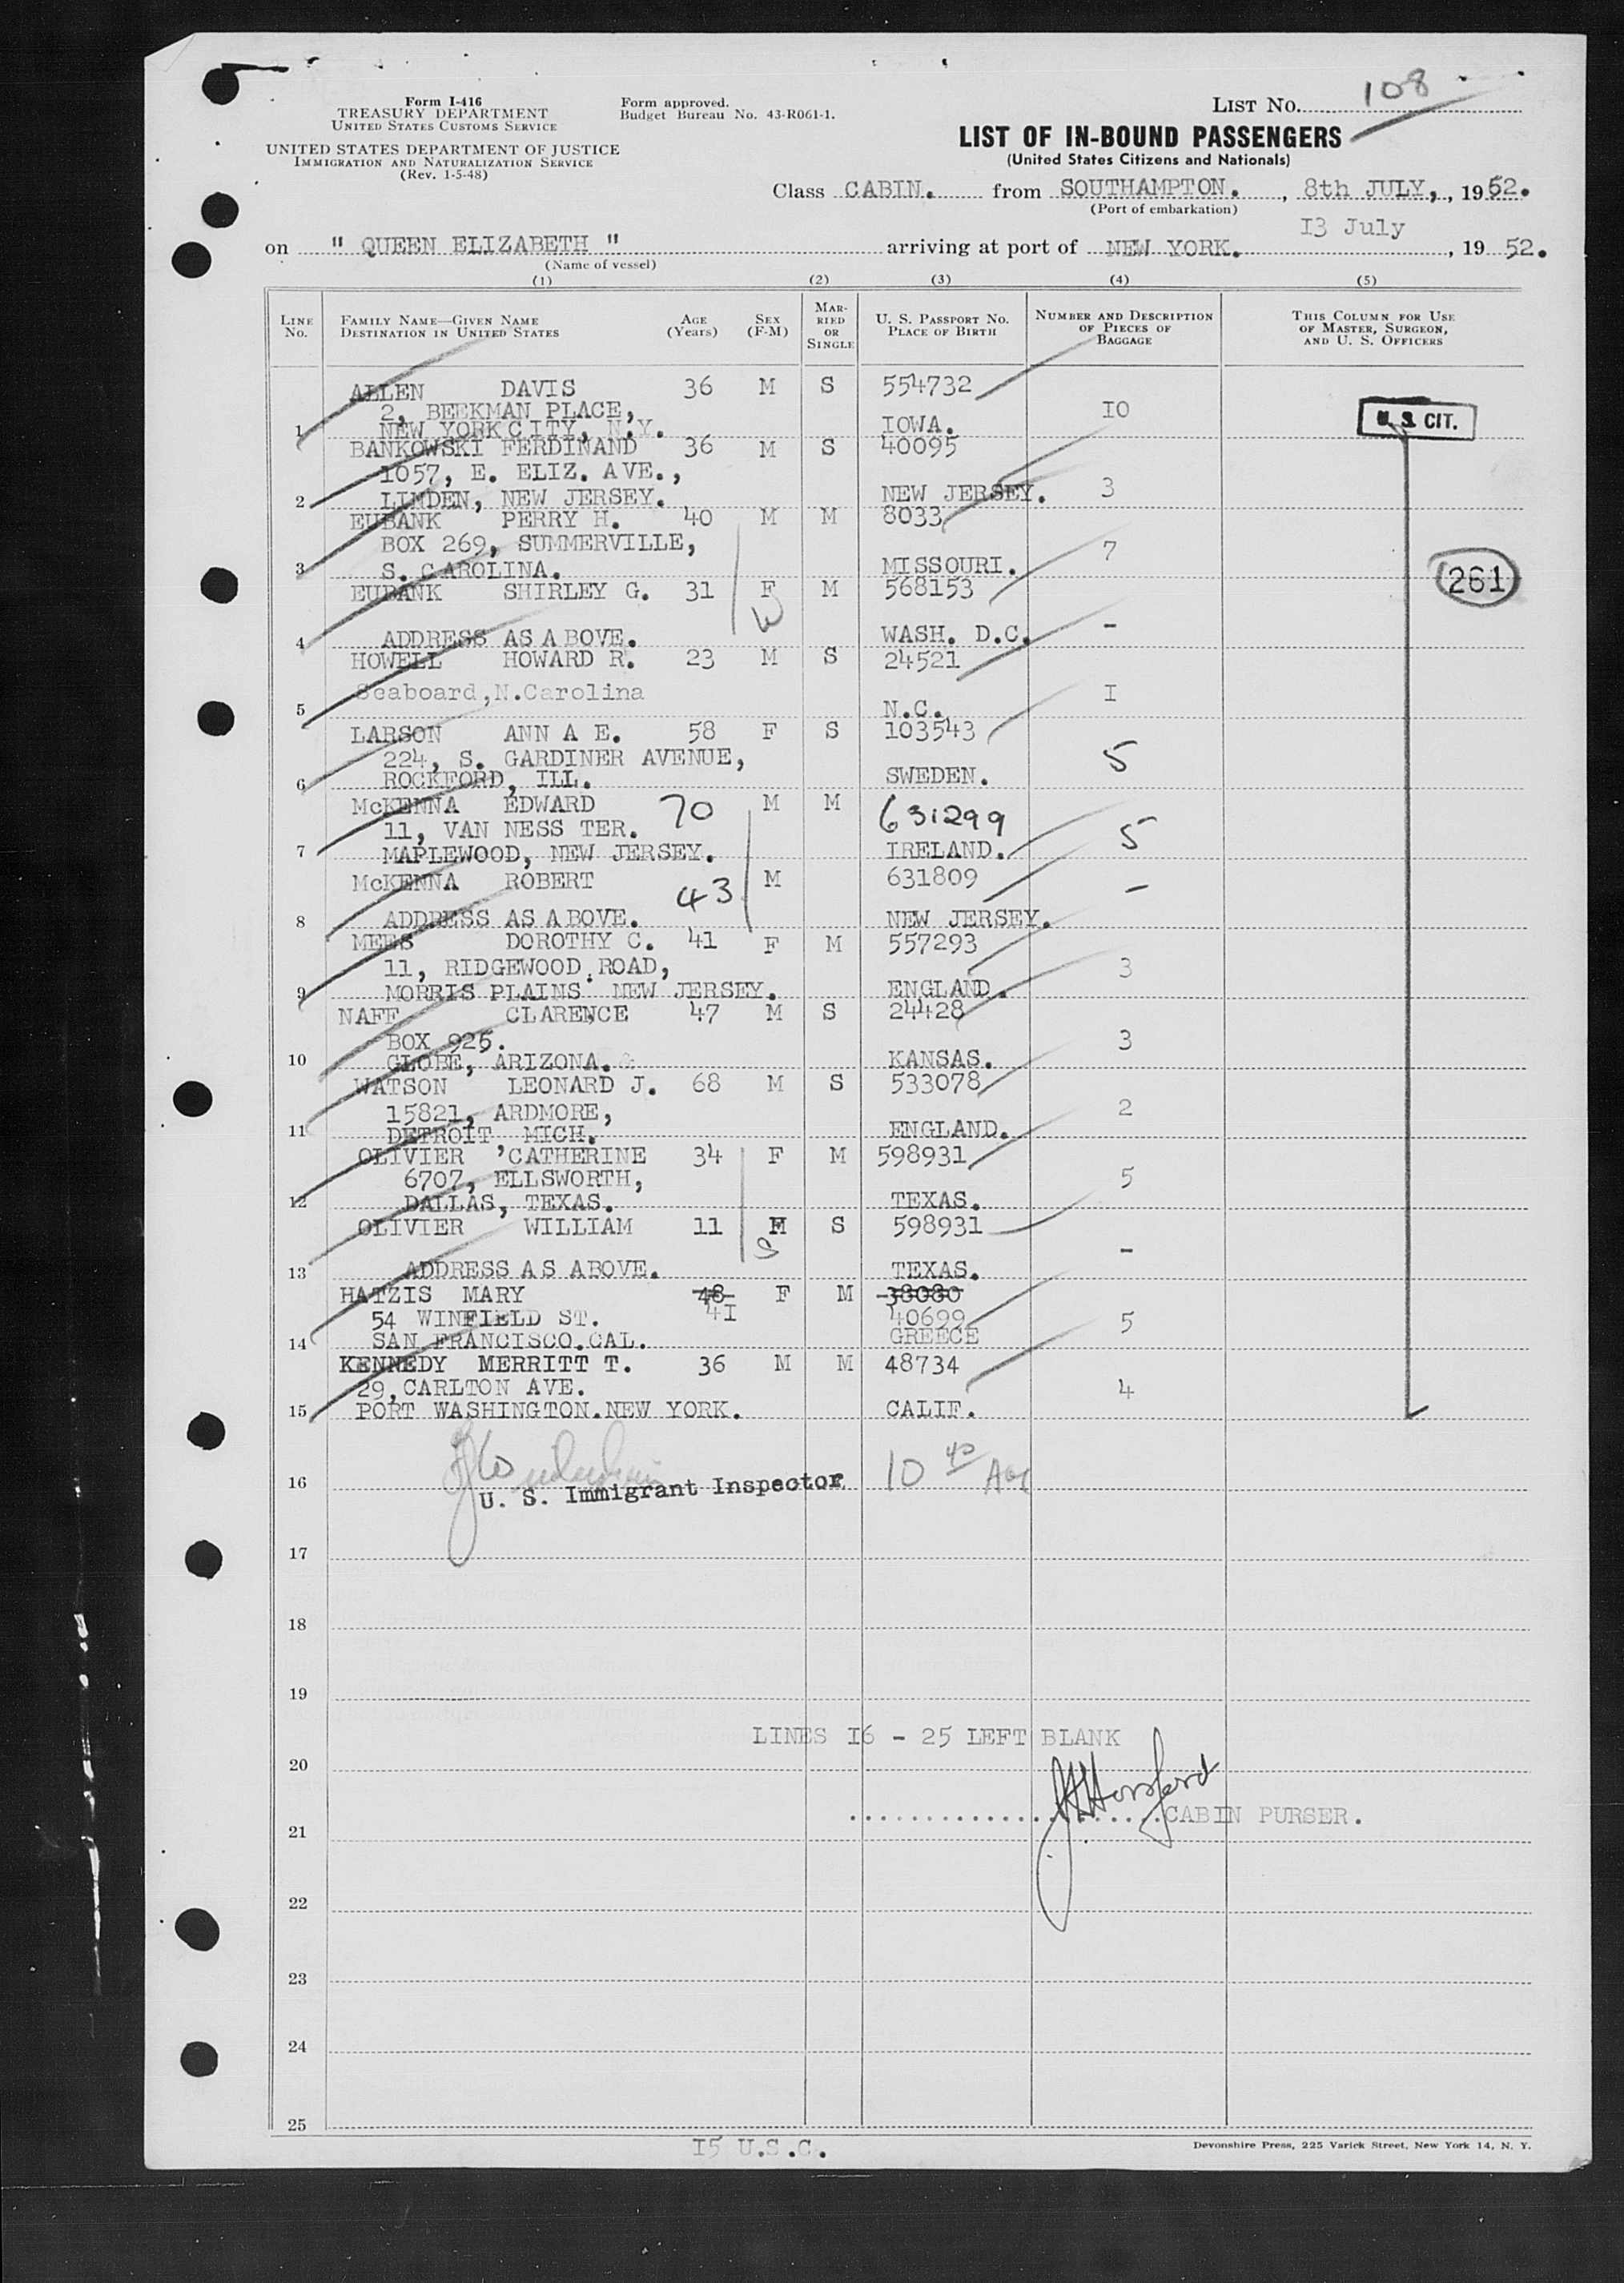 Form I-416
TREASURY DEPARTMENT
UNITED STATES CUSTOMS SERVICE
UNITED STATES DEPARTMENT OF JUSTICE
IMMIGRATION AND NATURALIZATION SERVICE
(Rev. 1-5-48)
Form approved.
Budget Bureau No. 43-R061-1.
LIST NO. 108
LIST OF IN-BOUND PASSENGERS
(United States Citizens and Nationals)
Class CABIN. from SOUTHAMPTON. , 8th JULY, , 1952.
(Port of embarkation)
13 July
on " QUEEN ELIZABETH " arriving at port of NEW YORK. , 19 52.
(Name of vessel)
(1) (2) (3) (4) (5)
LINE No. FAMILY NAME—GIVEN NAME DESTINATION IN UNITED STATES AGE (Years) SEX (F-M) MARRIED OR SINGLE U. S. PASSPORT NO. PLACE OF BIRTH NUMBER AND DESCRIPTION OF PIECES OF BAGGAGE THIS COLUMN FOR USE OF MASTER, SURGEON, AND U. S. OFFICERS
ALLEN DAVIS 36 M S 554732
2, BEEKMAN PLACE, IO
1 NEW YORK CITY, N.Y. IOWA. U. S. CIT.
BANKOWSKI FERDINAND 36 M S 40095
1057, E. ELIZ. AVE.,
2 LINDEN, NEW JERSEY. NEW JERSEY. 3
EUBANK PERRY H. 40 M M 8033
BOX 269, SUMMERVILLE, 7
3 S. CAROLINA. MISSOURI.
261
EUBANK SHIRLEY G. 31 F M 568153
W
4 ADDRESS AS ABOVE. WASH. D.C. -
HOWELL HOWARD R. 23 M S 24521
5 Seaboard,N.Carolina N.C. I
LARSON ANN A E. 58 F S 103543
224, S. GARDINER AVENUE, 5
6 ROCKFORD, ILL. SWEDEN.
McKENNA EDWARD 70 M M 631299
11, VAN NESS TER. 5
7 MAPLEWOOD, NEW JERSEY. IRELAND.
McKENNA ROBERT 43 M 631809
8 ADDRESS AS ABOVE. NEW JERSEY. -
MEES DOROTHY C. 41 F M 557293
11, RIDGEWOOD ROAD, 3
9 MORRIS PLAINS NEW JERSEY. ENGLAND.
NAFF CLARENCE 47 M S 24428
BOX 925. 3
10 GLOBE, ARIZONA. KANSAS.
WATSON LEONARD J. 68 M S 533078
15821, ARDMORE, 2
11 DETROIT, MICH. ENGLAND.
OLIVIER 'CATHERINE 34 F M 598931
6707, ELLSWORTH, 5
12 DALLAS, TEXAS. TEXAS.
OLIVIER WILLIAM 11 M S 598931
S
13 ADDRESS AS ABOVE. TEXAS. -
HATZIS MARY 48 F M 38080
54 WINFIELD ST. 4I 40699 5
14 SAN FRANCISCO.CAL. GREECE
KENNEDY MERRITT T. 36 M M 48734
29,CARLTON AVE. 4
15 PORT WASHINGTON.NEW YORK. CALIF.
16 U. S. Immigrant Inspector 10 40
17
18
19
LINES I6 - 25 LEFT BLANK
20
J Horsford
....................CABIN PURSER.
21
22
23
24
25
I5 U.S.C.
Devonshire Press, 225 Varick Street, New York 14, N. Y.